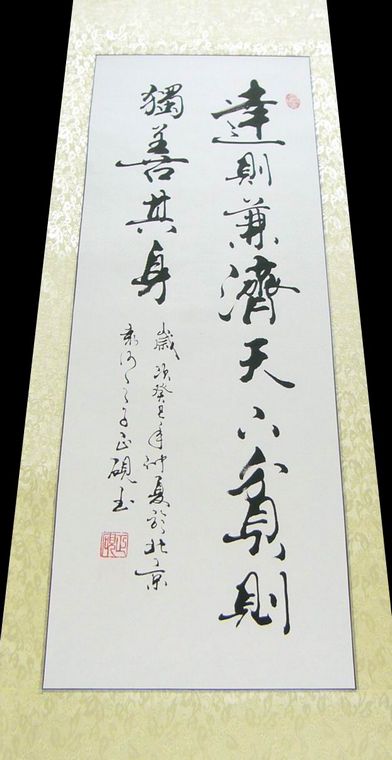 達則兼濟天下貧則
獨善其身
歲次癸巳年仲夏於北京
之子正硯